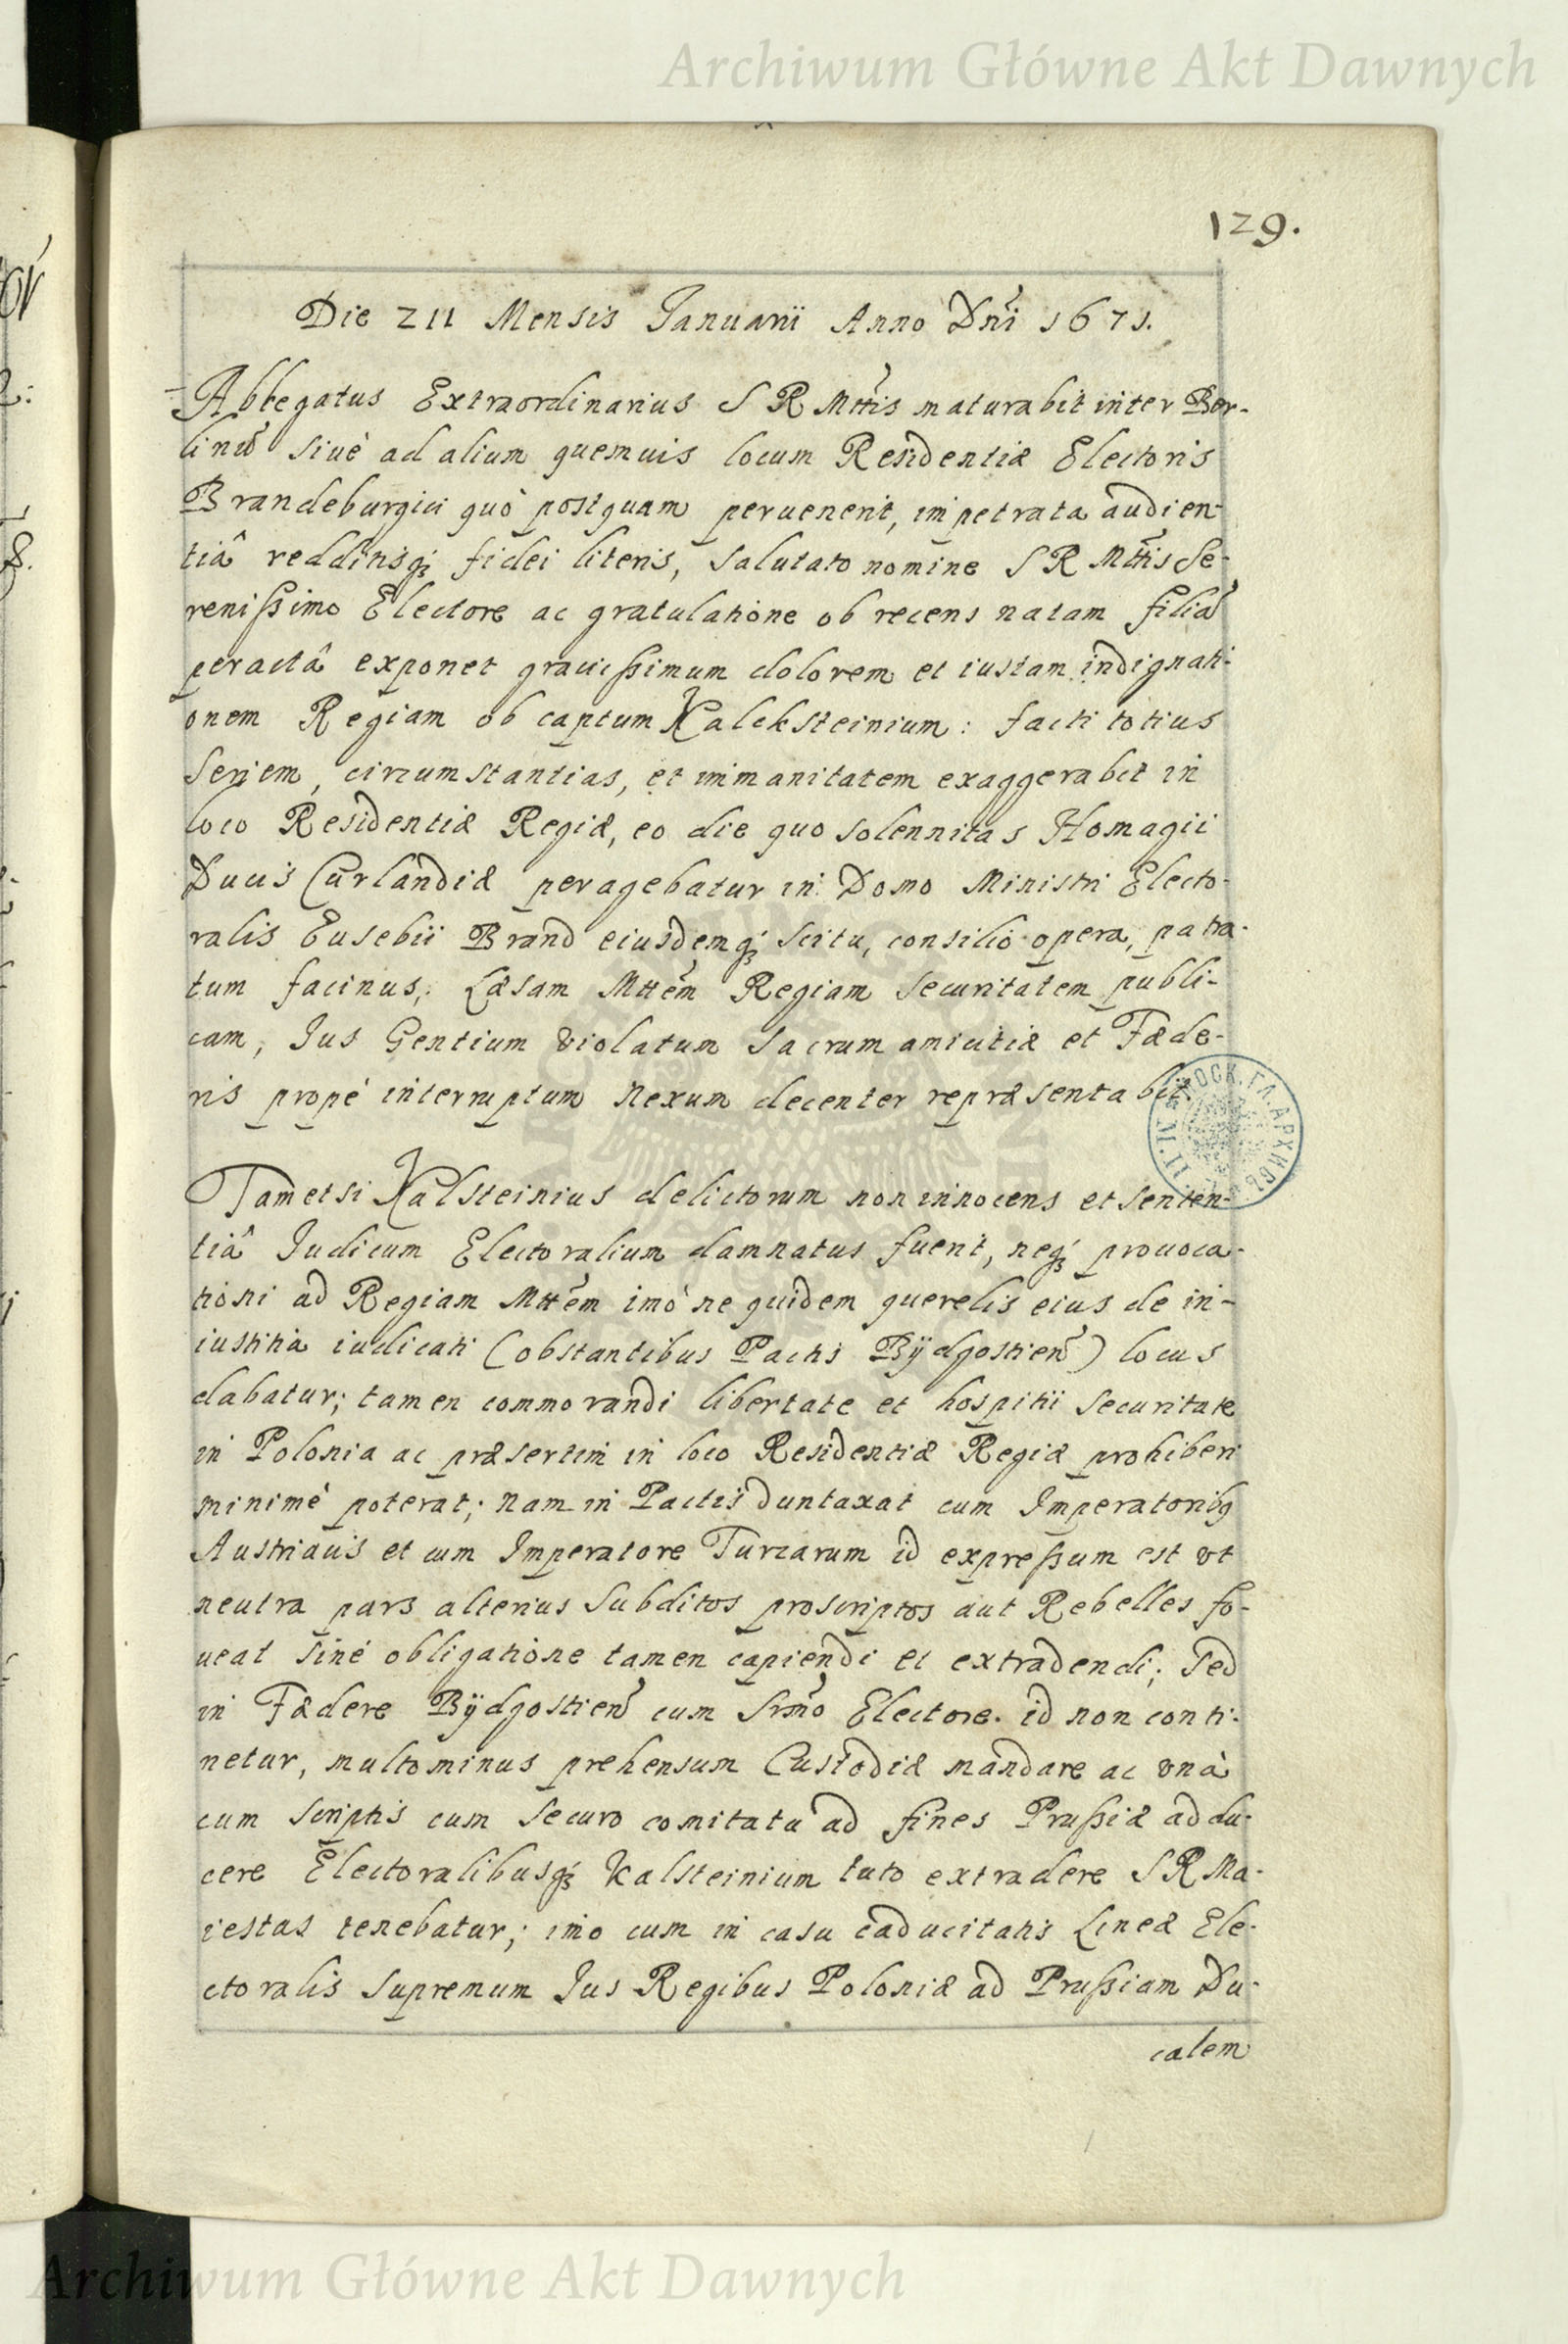 Archiwum Główne Akt Dawnych
129.
Die 211 Mensis Januarii Anno Dni 1671.
Ablegatus Extraordinarius S R Mttis maturabit inter Ber-
linũ siuè ad alium quemuis locum Residentiæ Electoris
Brandeburgici quò postquam peruenerit, impetrata audien-
tiâ redditisq; fidei literis, salutato nomine S R Mttis Se-
renissimo Electore ac gratulatione ob recens natam filiã
peractâ exponet grauissimum dolorem et iustam indignati-
onem Regiam ob captum Kalcksteinium: facti totius
seriem, circumstantias, et immanitatem exaggerabit in
loco Residentiæ Regiæ, eo die quo solennitas Homagii
Ducis Curlandiæ peragebatur in Domo Ministri Electo-
ralis Eusebii Brand eiusdemq; scitu, consilio opera, patra-
tum facinus, Læsam Mttem Regiam securitatem publi-
cam, Jus Gentium violatum sacrum amicitiæ et Fæde-
ris propè interruptum nexum decenter repræsentabit.
Tametsi Kalsteinius delictorum non innocens et senten-
tiâ Judicum Electoralium damnatus fuerit, neq; prouoca-
tioni ad Regiam Mttem imò ne quidem querelis eius de in-
iustitia iudicati (obstantibus Pactis Bÿdgostien) locus
dabatur; tamen commorandi libertate et hospitii securitate
in Polonia ac præsertim in loco Residentiæ Regiæ prohiberi
minimè poterat; nam in Pactis duntaxat cum Imperatoribq
Austriacis et cum Imperatore Turcarum id expressum est vt
neutra pars alterius subditos proscriptos aut Rebelles fo-
ueat sinè obligatione tamen capiendi et extradendi; Sed
in Fædere Bÿdgostien cum Srmo Electore id non conti-
netur, multominus prehensum Custodiæ mandare ac vnà
cum scriptis cum securo comitatu ad fines Prussiæ addu-
cere Electoralibusq; Kalsteinium tuto extradere S R Ma-
iestas tenebatur; imo cum in casu caducitatis Lineæ Ele-
ctoralis supremum Jus Regibus Poloniæ ad Prussiam Du-
calem
Archiwum Główne Akt Dawnych